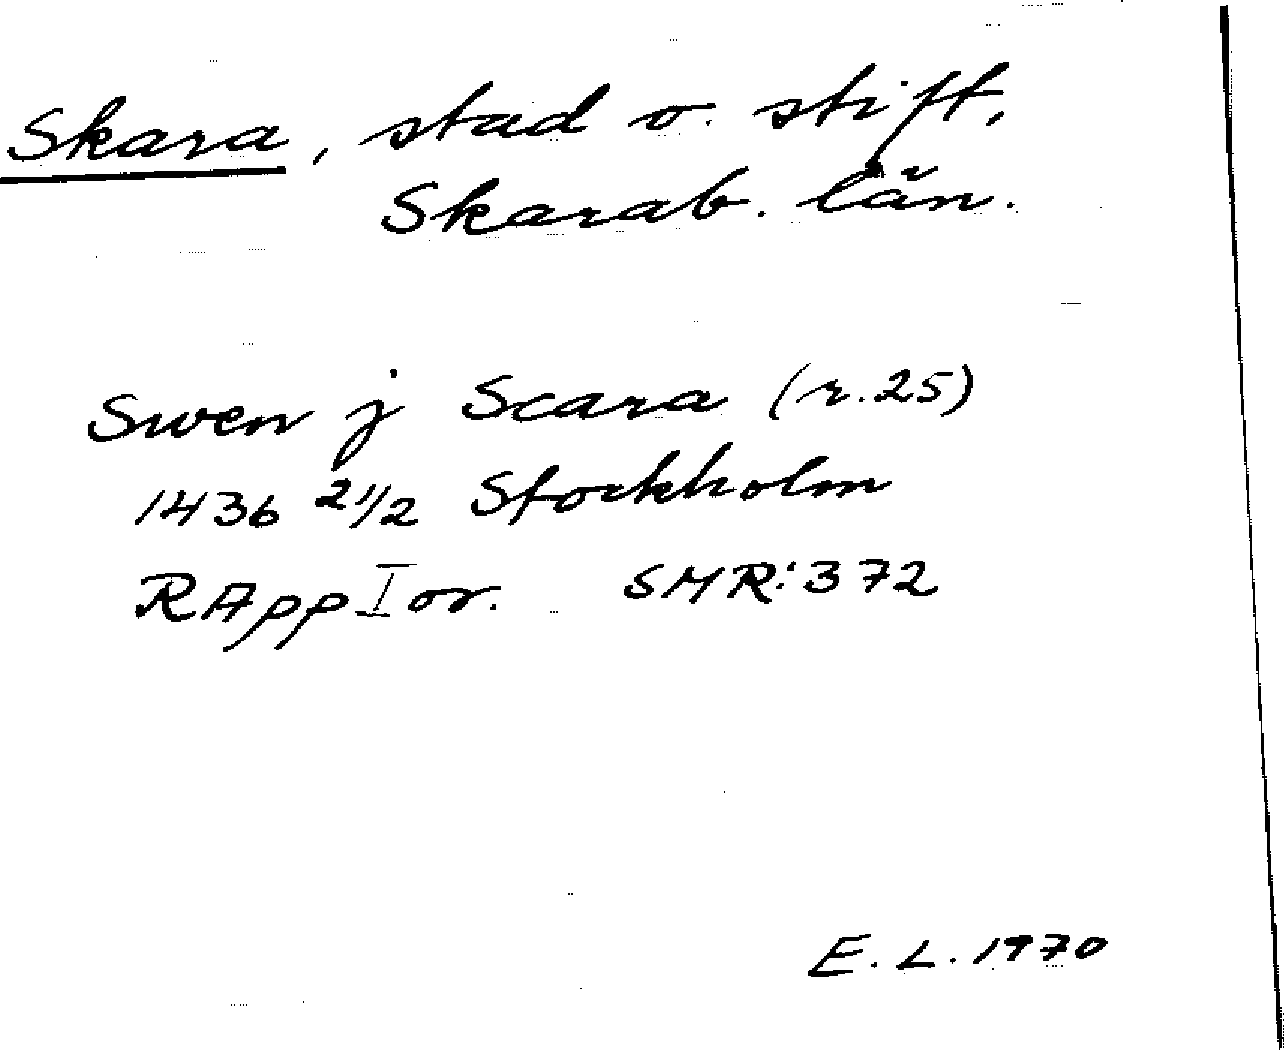 Skara, stad o. stift,
Skarab. län.
Swen j Scara (r. 25)
1436 21/2 Stockholm
RApp I or. SMR: 372
E. L. 1970